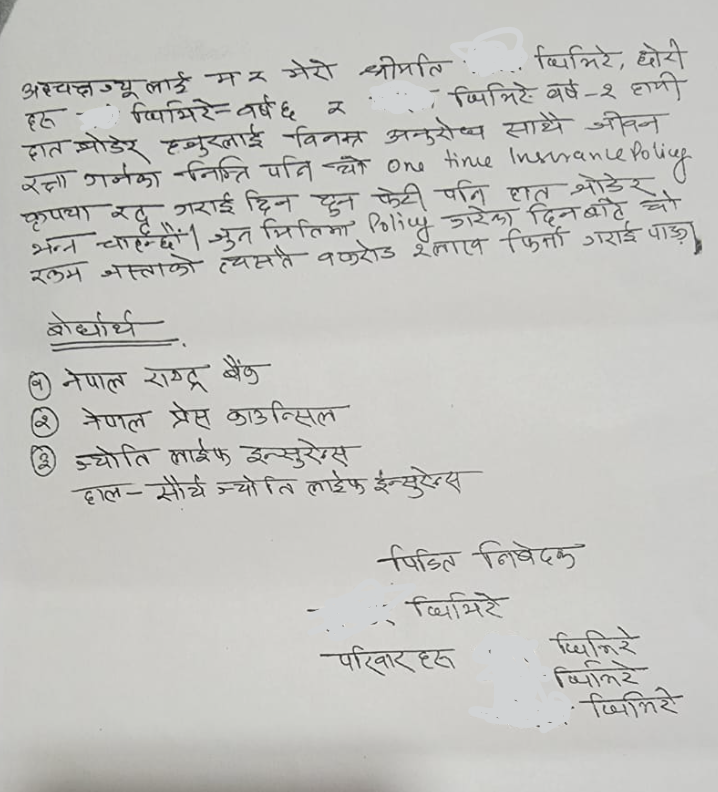 अध्यक्षज्यू लाई म र मेरो श्रीमति घिमिरे, छोरी
हरू घिमिरे- वर्ष ६ र घिमिरे वर्ष-२ हामी
हात जोडेर हजुरलाई विनम्र अनुरोध साथै जीवन
रक्षा गर्नका निम्ति पनि यो One time Insurance Policy
कृपया रद्द गराई दिन हुन फेरी पनि हात जोडेर
भन्न चाहन्छौं। जुन मितिमा Policy गरेका दिन बाटै यो
रकम जस्ताको त्यस्तै १ करोड २ लाख फिर्ता गराई पाऊ।
बोधार्थ
(१) नेपाल राष्ट्र बैंक
(२) नेपाल प्रेस काउन्सिल
(३) ज्योति लाईफ इन्सुरेन्स
हाल - सौर्य ज्योति लाईफ ईन्सुरेन्स
पिडित निबेदक
घिमिरे
परिवार हरू घिमिरे
घिमिरे
घिमिरे